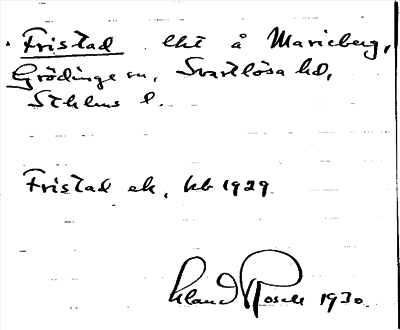 Fristad lht å Marieberg,
Grödinge sn, Svartlösa hd,
Sthlms l.
Fristad ek, kb 1929
Roselı 1930.